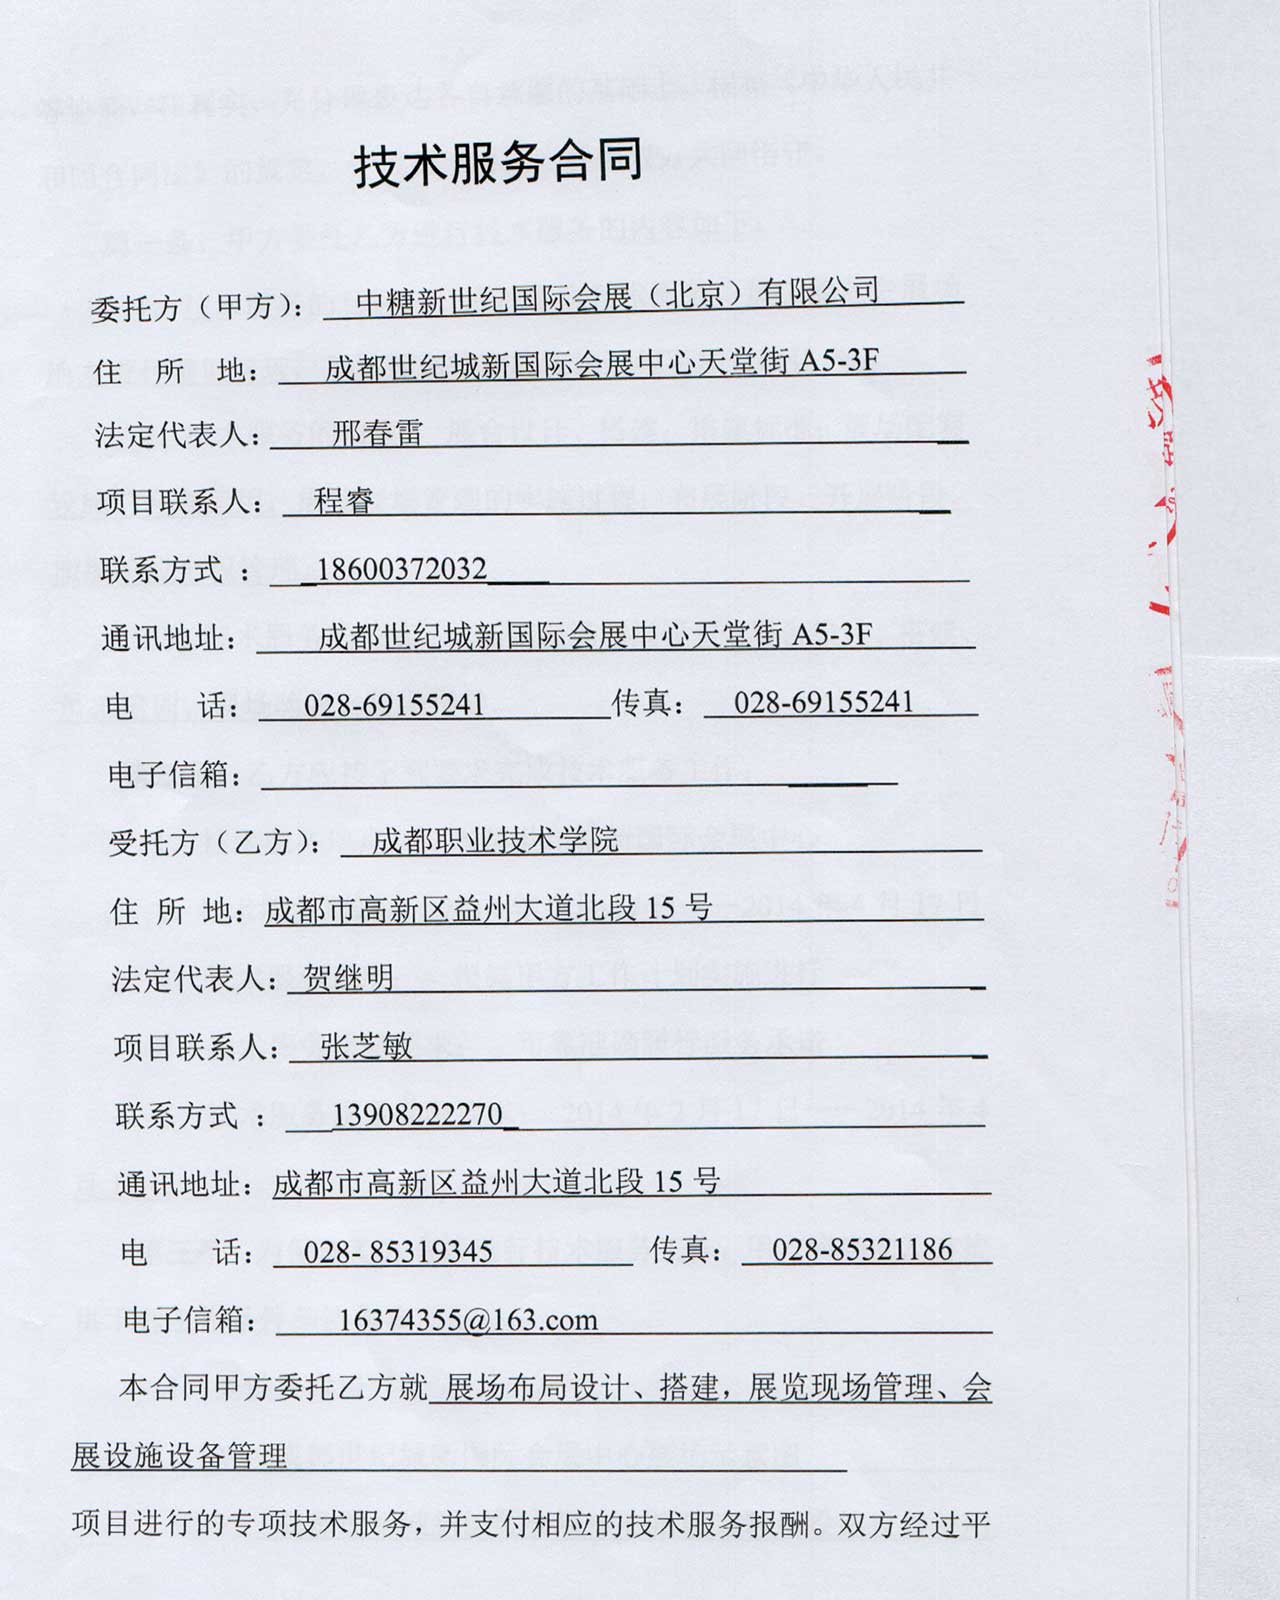 技术服务合同
委托方（甲方）： 中糖新世纪国际会展（北京）有限公司
住 所 地： 成都世纪城新国际会展中心天堂街 A5-3F
法定代表人： 邢春雷
项目联系人： 程睿
联系方式 ： 18600372032
通讯地址： 成都世纪城新国际会展中心天堂街 A5-3F
电 话： 028-69155241 传真： 028-69155241
电子信箱：
受托方（乙方）： 成都职业技术学院
住 所 地： 成都市高新区益州大道北段 15 号
法定代表人： 贺继明
项目联系人： 张芝敏
联系方式 ： 13908222270
通讯地址： 成都市高新区益州大道北段 15 号
电 话： 028- 85319345 传真： 028-85321186
电子信箱： 16374355@163.com
本合同甲方委托乙方就 展场布局设计、搭建，展览现场管理、会
展设施设备管理
项目进行的专项技术服务，并支付相应的技术服务报酬。双方经过平